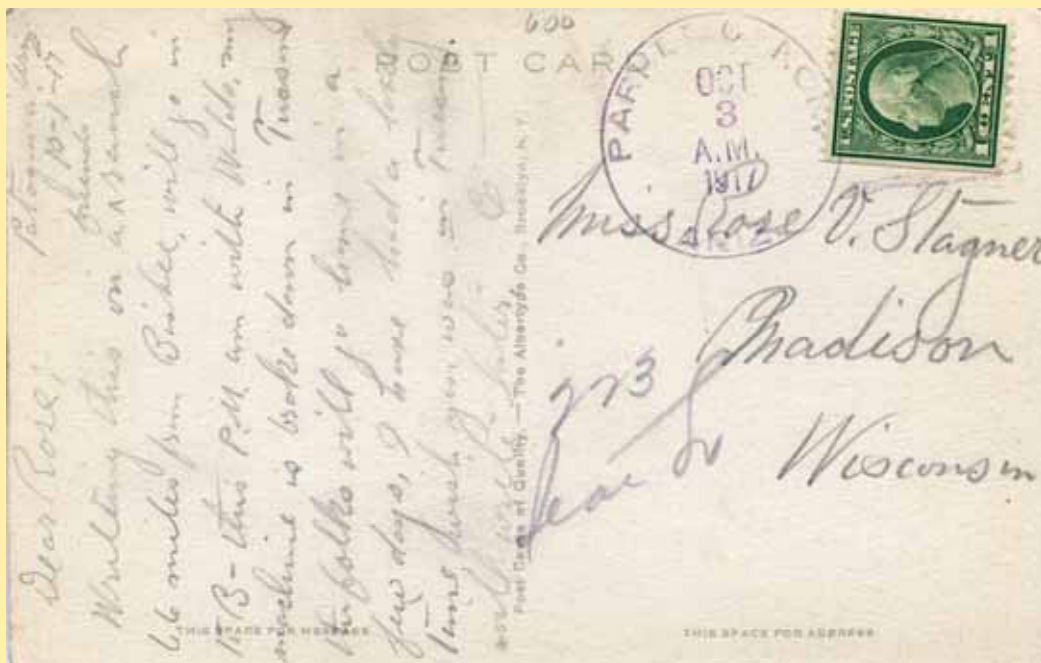 600
POST CAR
OCT
3
A.M.
1917
ARIZ
U.S.POSTAGE
1 CENT 1
Miss Rose V. Stagner
Madison
Wisconsin
273
Dear Rose,
10-1-17
Writing this on a
66 miles from Bisbee, will go in
to B- this P.M. am with Waldo, my
machine is broke down in Tucson
the folks will go home in a
few days, I have had a
time, wish you was in Tucson.
Post Cards of Quality. — The Albertype Co., Brooklyn, N. Y.
THIS SPACE FOR MESSAGE
THIS SPACE FOR ADDRESS